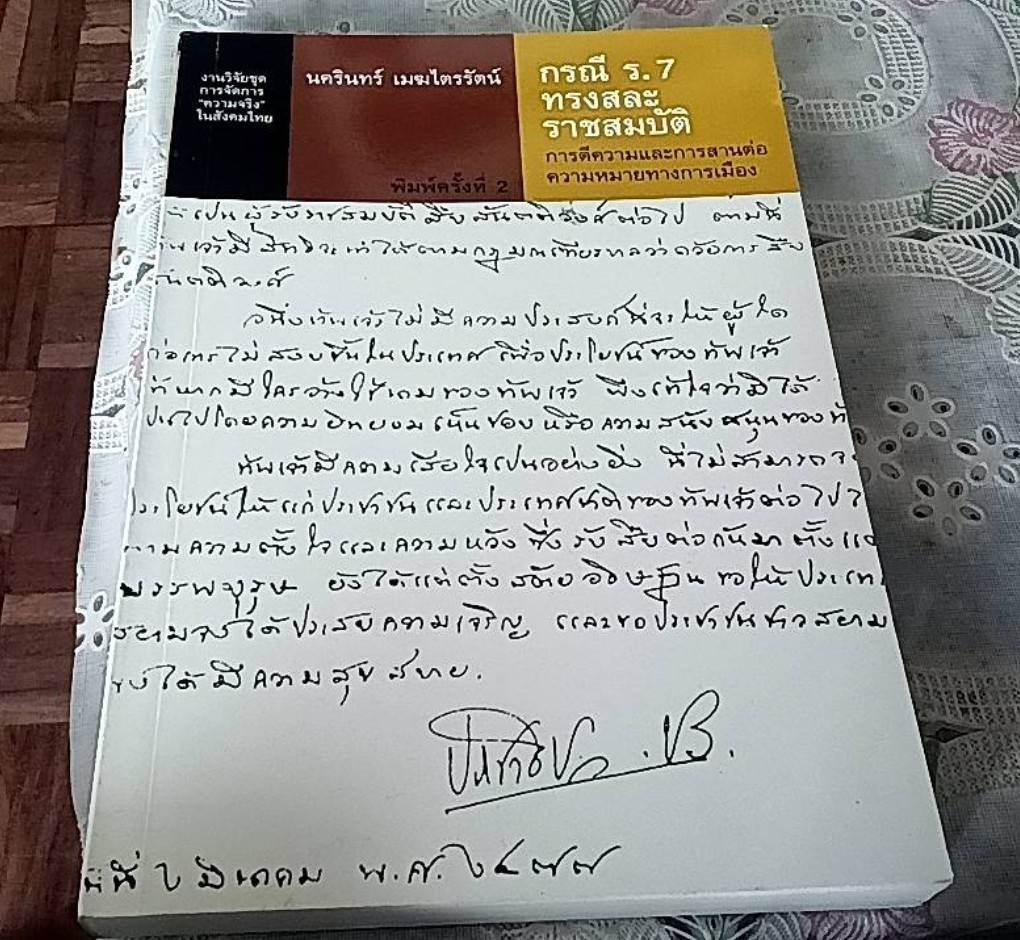 งานวิจัยชุด
การจัดการ
"ความจริง"
ในสังคมไทย
นครินทร์ เมฆไตรรัตน์
พิมพ์ครั้งที่ 2
กรณี ร.7
ทรงสละ
ราชสมบัติ
การตีความและการสานต่อ
ความหมายทางการเมือง
เป็นผู้รับราชสมบัติสืบสันตติวงศ์ต่อไป ตามที่
มีสิทธิจะทำได้ตามกฎมณเฑียรบาลว่าด้วยการสืบ
อนึ่งข้าพเจ้าไม่มีความประสงค์ที่จะให้ผู้ใด
ไม่สงบขึ้นในประเทศ เพื่อประโยชน์ของข้าพเจ้า
หากมีใครอ้างใช้นามของข้าพเจ้า พึงเข้าใจว่ามิได้
ไปโดยความยินยอมเห็นชอบหรือความสนับสนุนของ
ข้าพเจ้ามีความเสียใจเป็นอย่างยิ่ง ที่ไม่สามารถ
ให้แก่ประชาชนและประเทศชาติของข้าพเจ้าต่อไป
ความตั้งใจและความหวังซึ่งรับสืบต่อกันมาตั้งแต่
บรรพบุรุษ ยังได้แต่ตั้งสัตยอธิษฐาน ขอให้ประเทศ
สยามจงได้ประสบความเจริญ และขอประชาชนชาวสยาม
จงได้มีความสุขสบาย.
ประชาธิปก. ปร.
ที่ ๒ มีนาคม พ.ศ. ๒๔๗๗